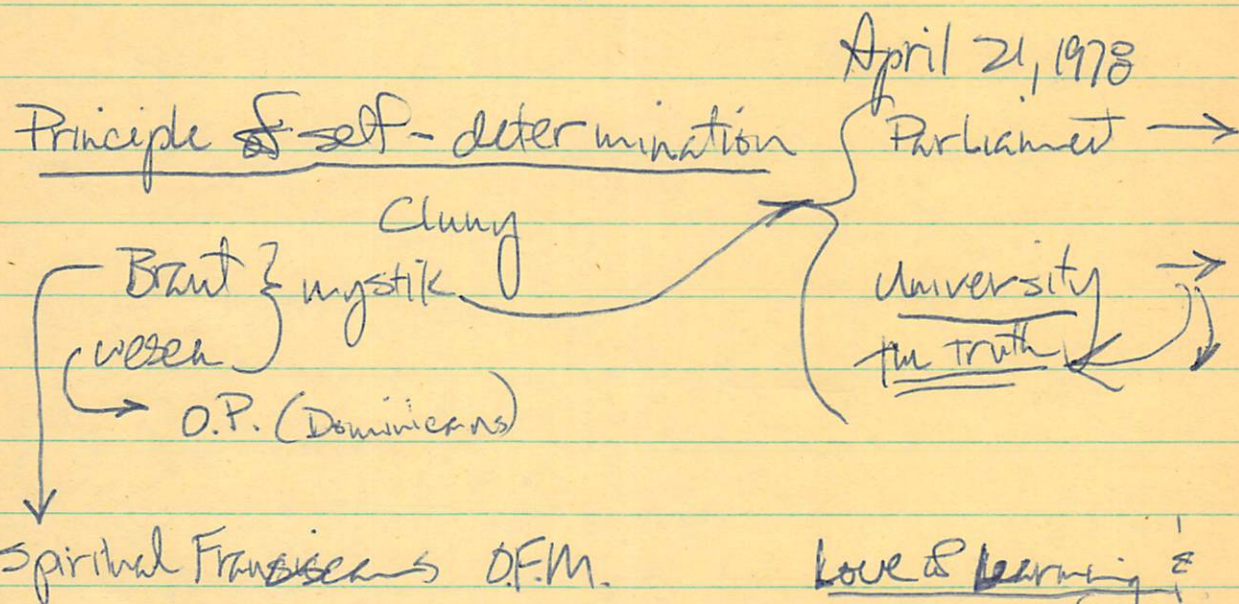 April 21, 1978
Principle of self-determination { Parliament →
Cluny
Braut } mystik University →
wesen the truth
→ O.P. (Dominicans)
Spiritual Franciscans O.F.M. Love of Learning &